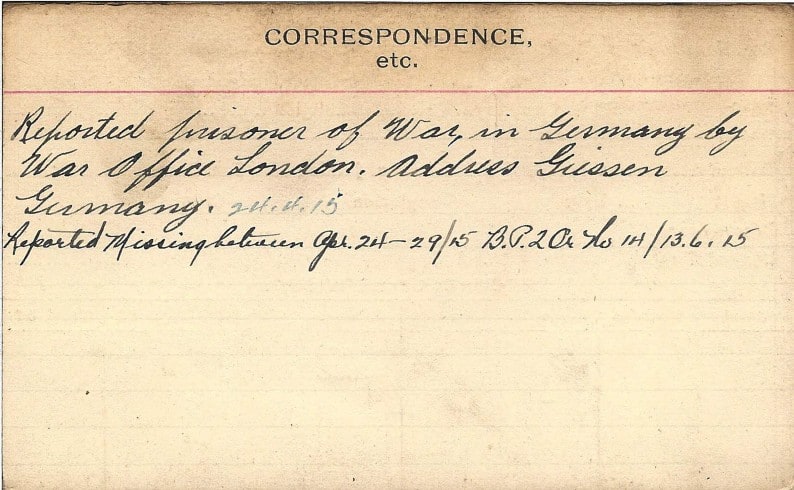 CORRESPONDENCE,
etc.
Reported prisoner of War, in Germany by
War Office London. Address Giessen
Germany. 24.4.15
Reported Missing between Apr. 24-29/15 B.P.2 Or No 14/13.6.15